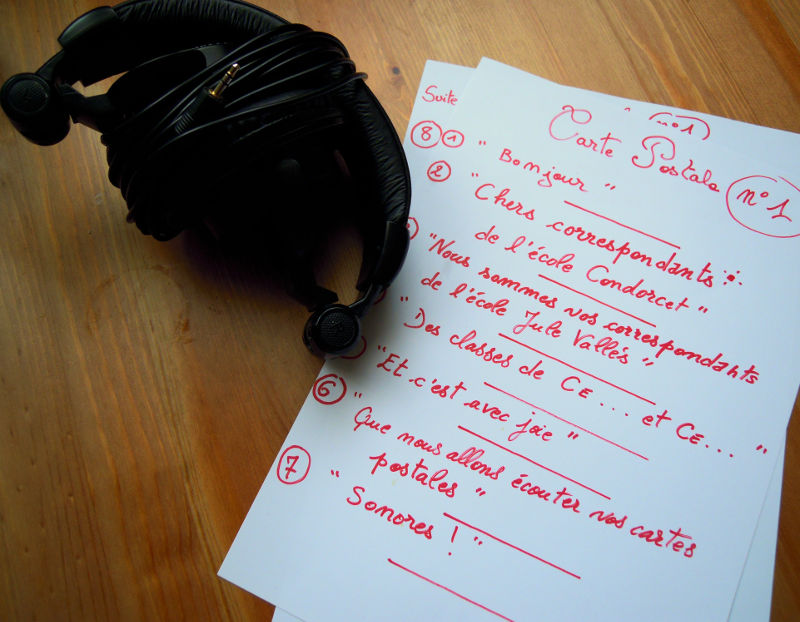 Suite
8
n°1
Carte Postale n°1
1 " Bonjour "
2 " Chers correspondants
de l'école Condorcet "
" Nous sommes vos correspondants
de l'école Jule Vallès "
" Des classes de CE ... et CE ... "
" Et c'est avec joie "
6 " Que nous allons écouter vos cartes
postales "
7 " Sonores ! "